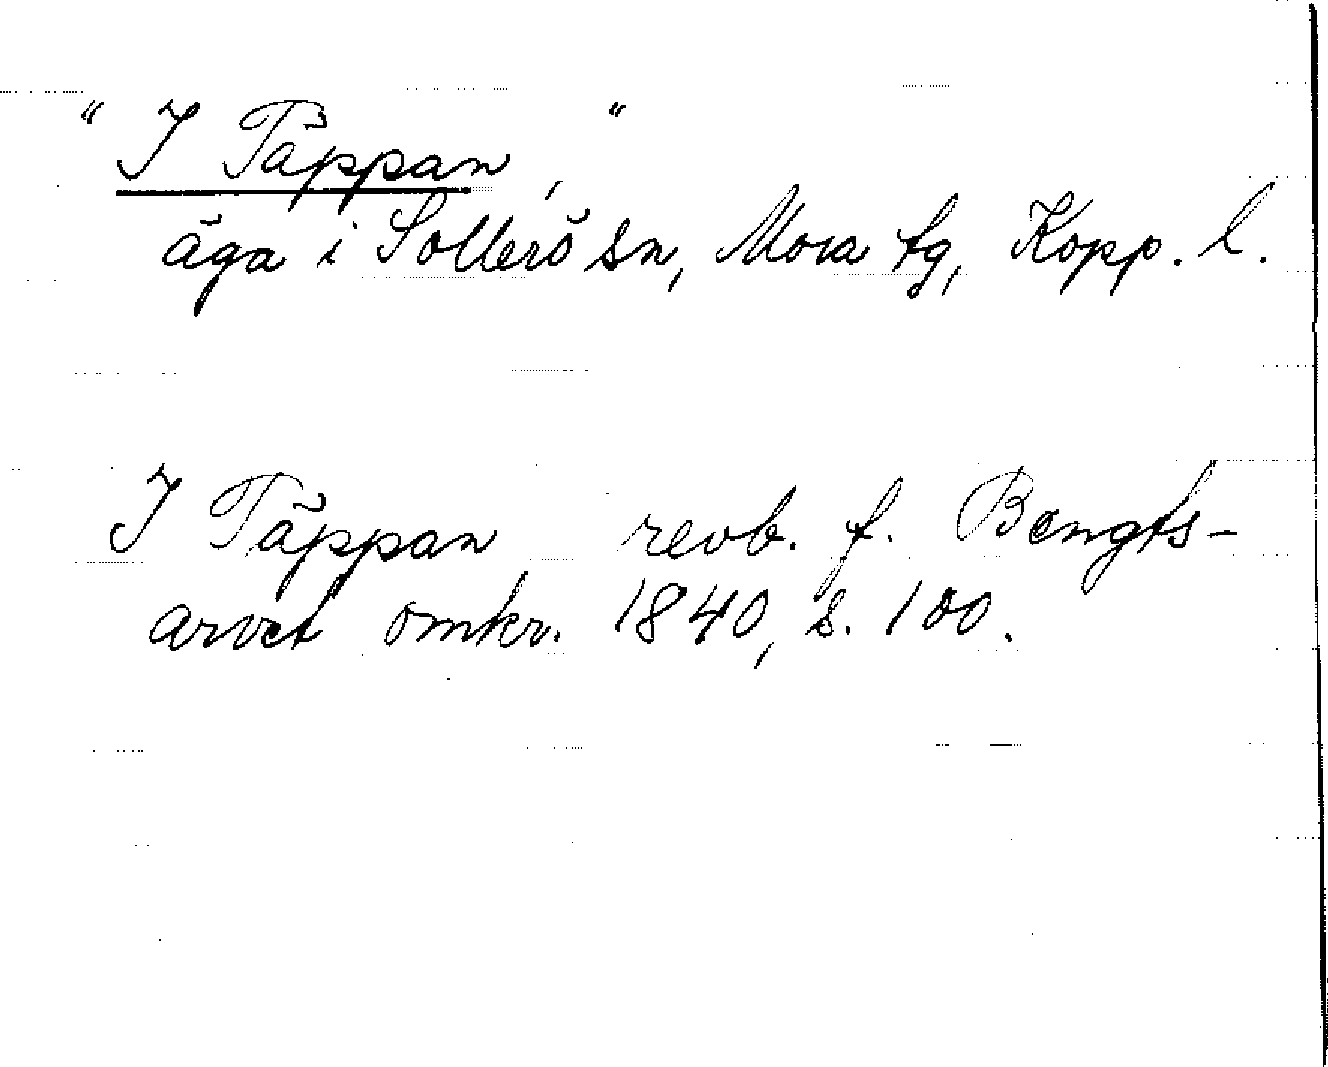 " I Täppan, "
äga i Sollerö sn, Mora tg, Kopp. l.
I Täppan revb. f. Bengts-
arvet omkr. 1840, s. 100.